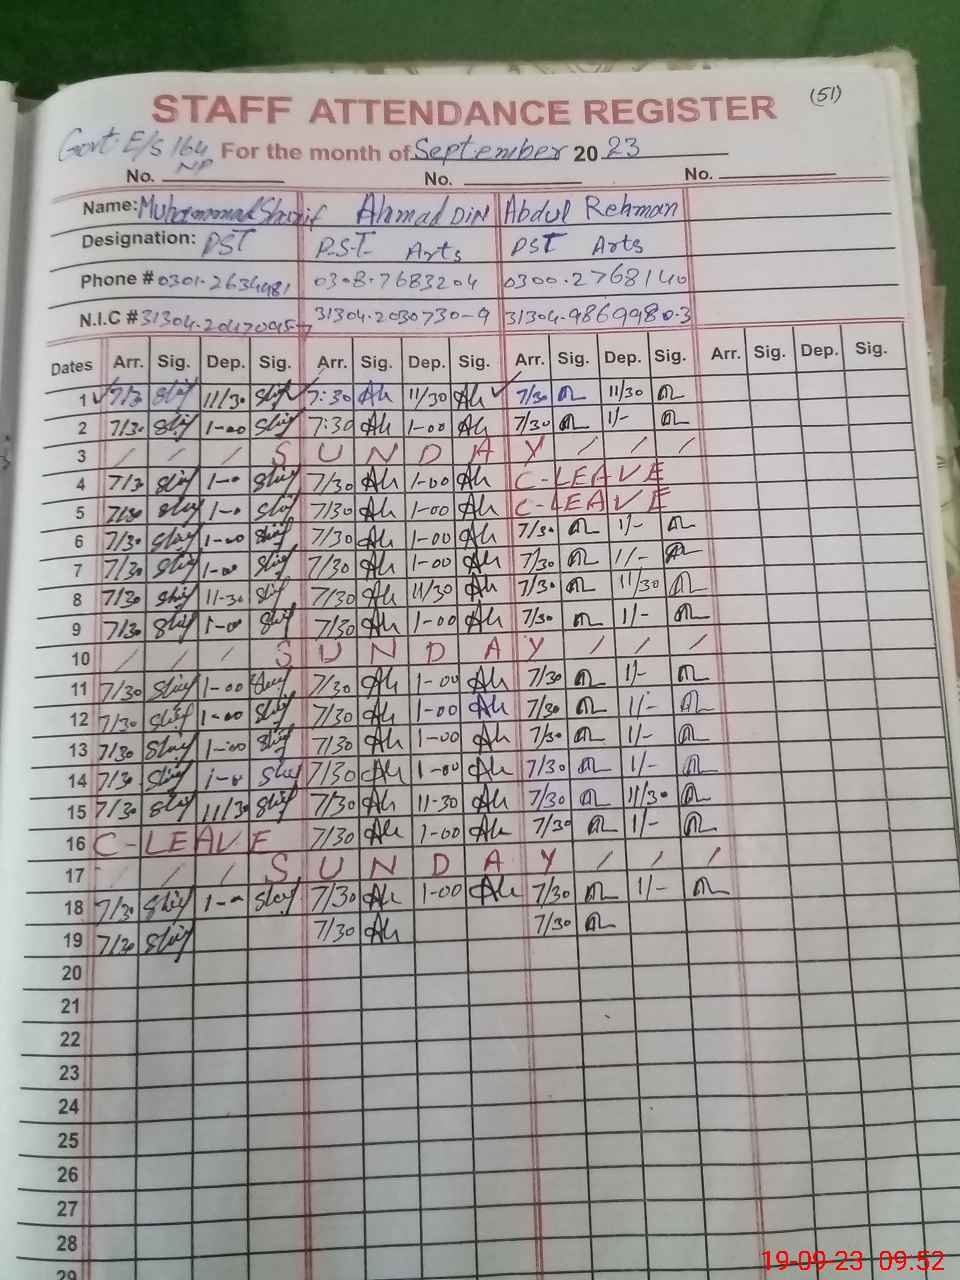 (51)
STAFF ATTENDANCE REGISTER
Govt: E/S 164 For the month of September 20 23
NP
No. No. No.
Name: Muhammad Sharif Ahmad Din Abdul Rehman
Designation: PST P.S.T. Arts PST Arts
Phone # 0301-2634981 0308-7683204 0300.2768140
N.I.C # 31304.2047095-7 31304.2030730-9 31304.9869980.3
Dates Arr. Sig. Dep. Sig. Arr. Sig. Dep. Sig. Arr. Sig. Dep. Sig. Arr. Sig. Dep. Sig.
1 7/30 11/30 7:30 Ah 11/30 Ah 7/30 11/30
2 7/30 1-00 7:30 Ah 1-00 Ah 7/30 1/-
3 / / / S U N D A Y / / /
4 7/30 1-0 7/30 Ah 1-00 Ah C-LEAVE
5 7/30 1-0 7/30 Ah 1-00 Ah C-LEAVE
6 7/30 1-00 7/30 Ah 1-00 Ah 7/30 1/-
7 7/30 1-00 7/30 Ah 1-00 Ah 7/30 1/-
8 7/30 11-30 7/30 Ah 11/30 Ah 7/30 11/30
9 7/30 1-00 7/30 Ah 1-00 Ah 7/30 1/-
10 / / / S U N D A Y / / /
11 7/30 1-00 7/30 Ah 1-00 Ah 7/30 1/-
12 7/30 1-00 7/30 Ah 1-00 Ah 7/30 1/-
13 7/30 1-00 7/30 Ah 1-00 Ah 7/30 1/-
14 7/30 1-0 7/30 Ah 1-00 Ah 7/30 1/-
15 7/30 11/30 7/30 Ah 11-30 Ah 7/30 11/30
16 C-LEAVE 7/30 Ah 1-00 Ah 7/30 1/-
17 / / / S U N D A Y / / /
18 7/30 1-0 7/30 Ah 1-00 Ah 7/30 1/-
19 7/30 7/30 Ah 7/30
20
21
22
23
24
25
26
27
28
29
19-09-23 09:52